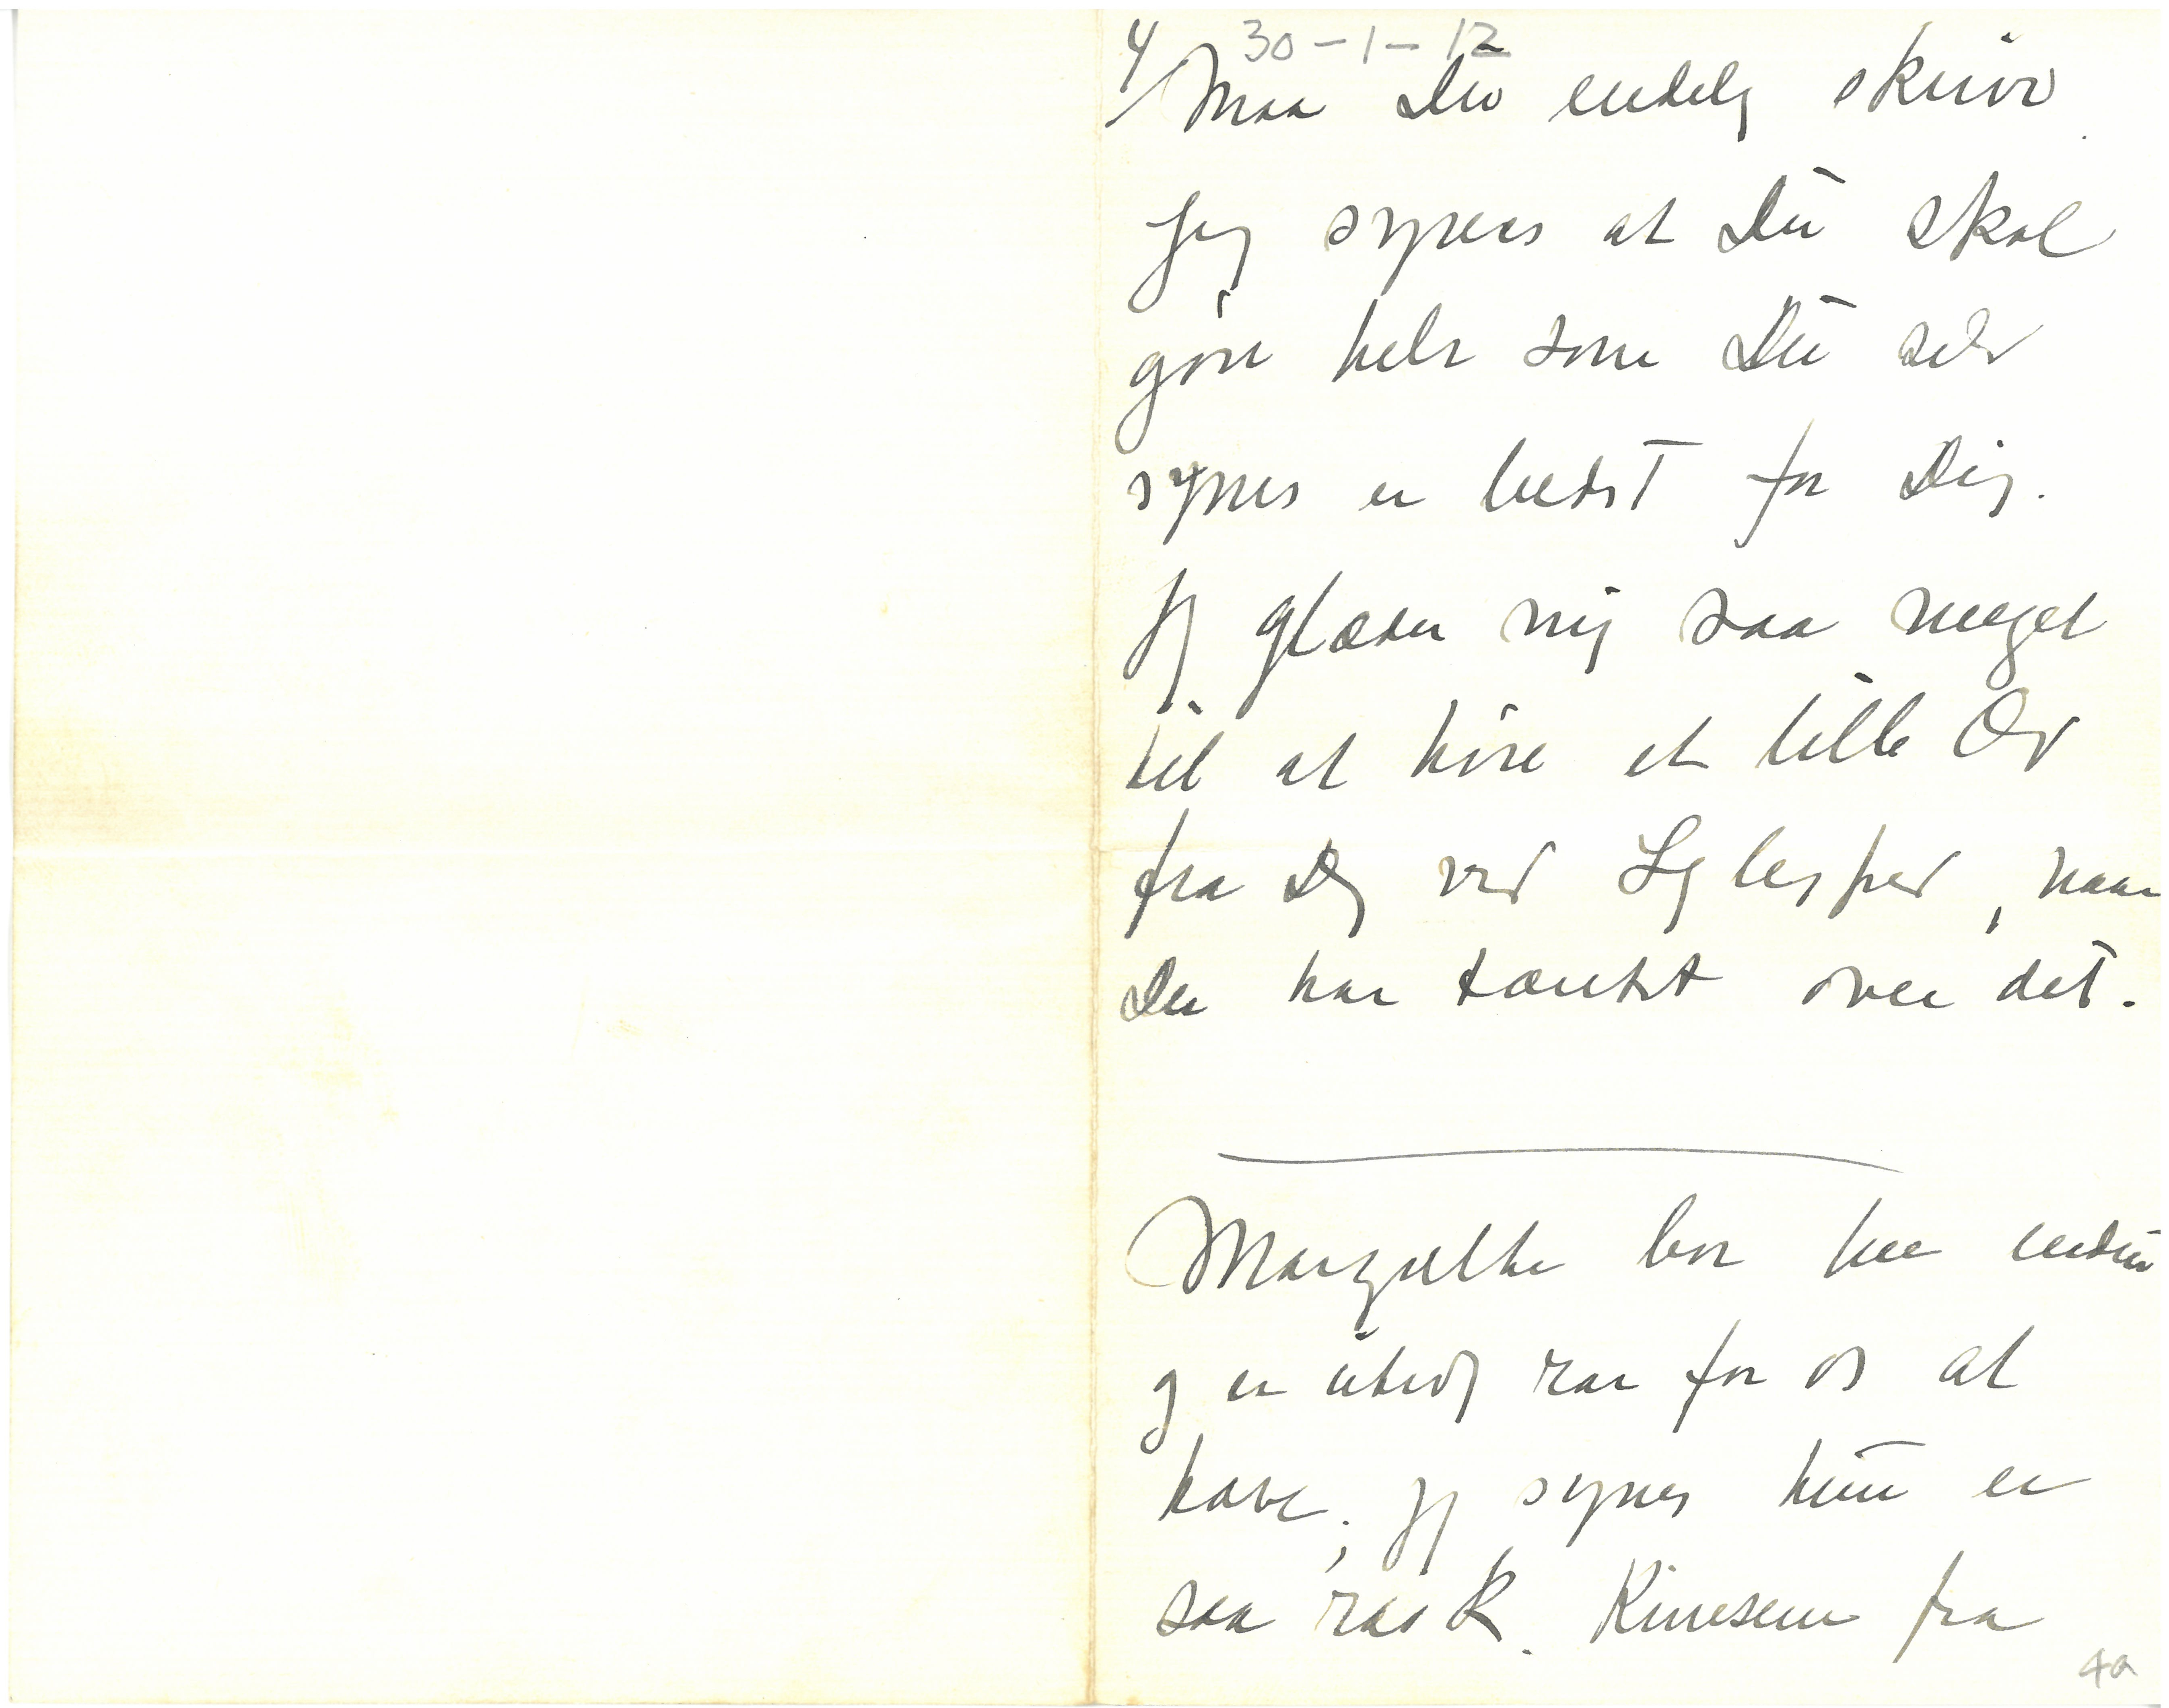 4/ 30-1-12
Maa Du endelig skrive.
Jeg synes at Du skal
gøre helt som Du selv
synes er bedst for Dig.
Jeg glæder mig saa meget
til at høre et lille Ord
fra Dig ved Lejlighed, naar
Du har tænkt over det.
bor her endnu
og er utrolig rar for os at
have, jeg synes hun er
saa rask. Kineseren fra
4a